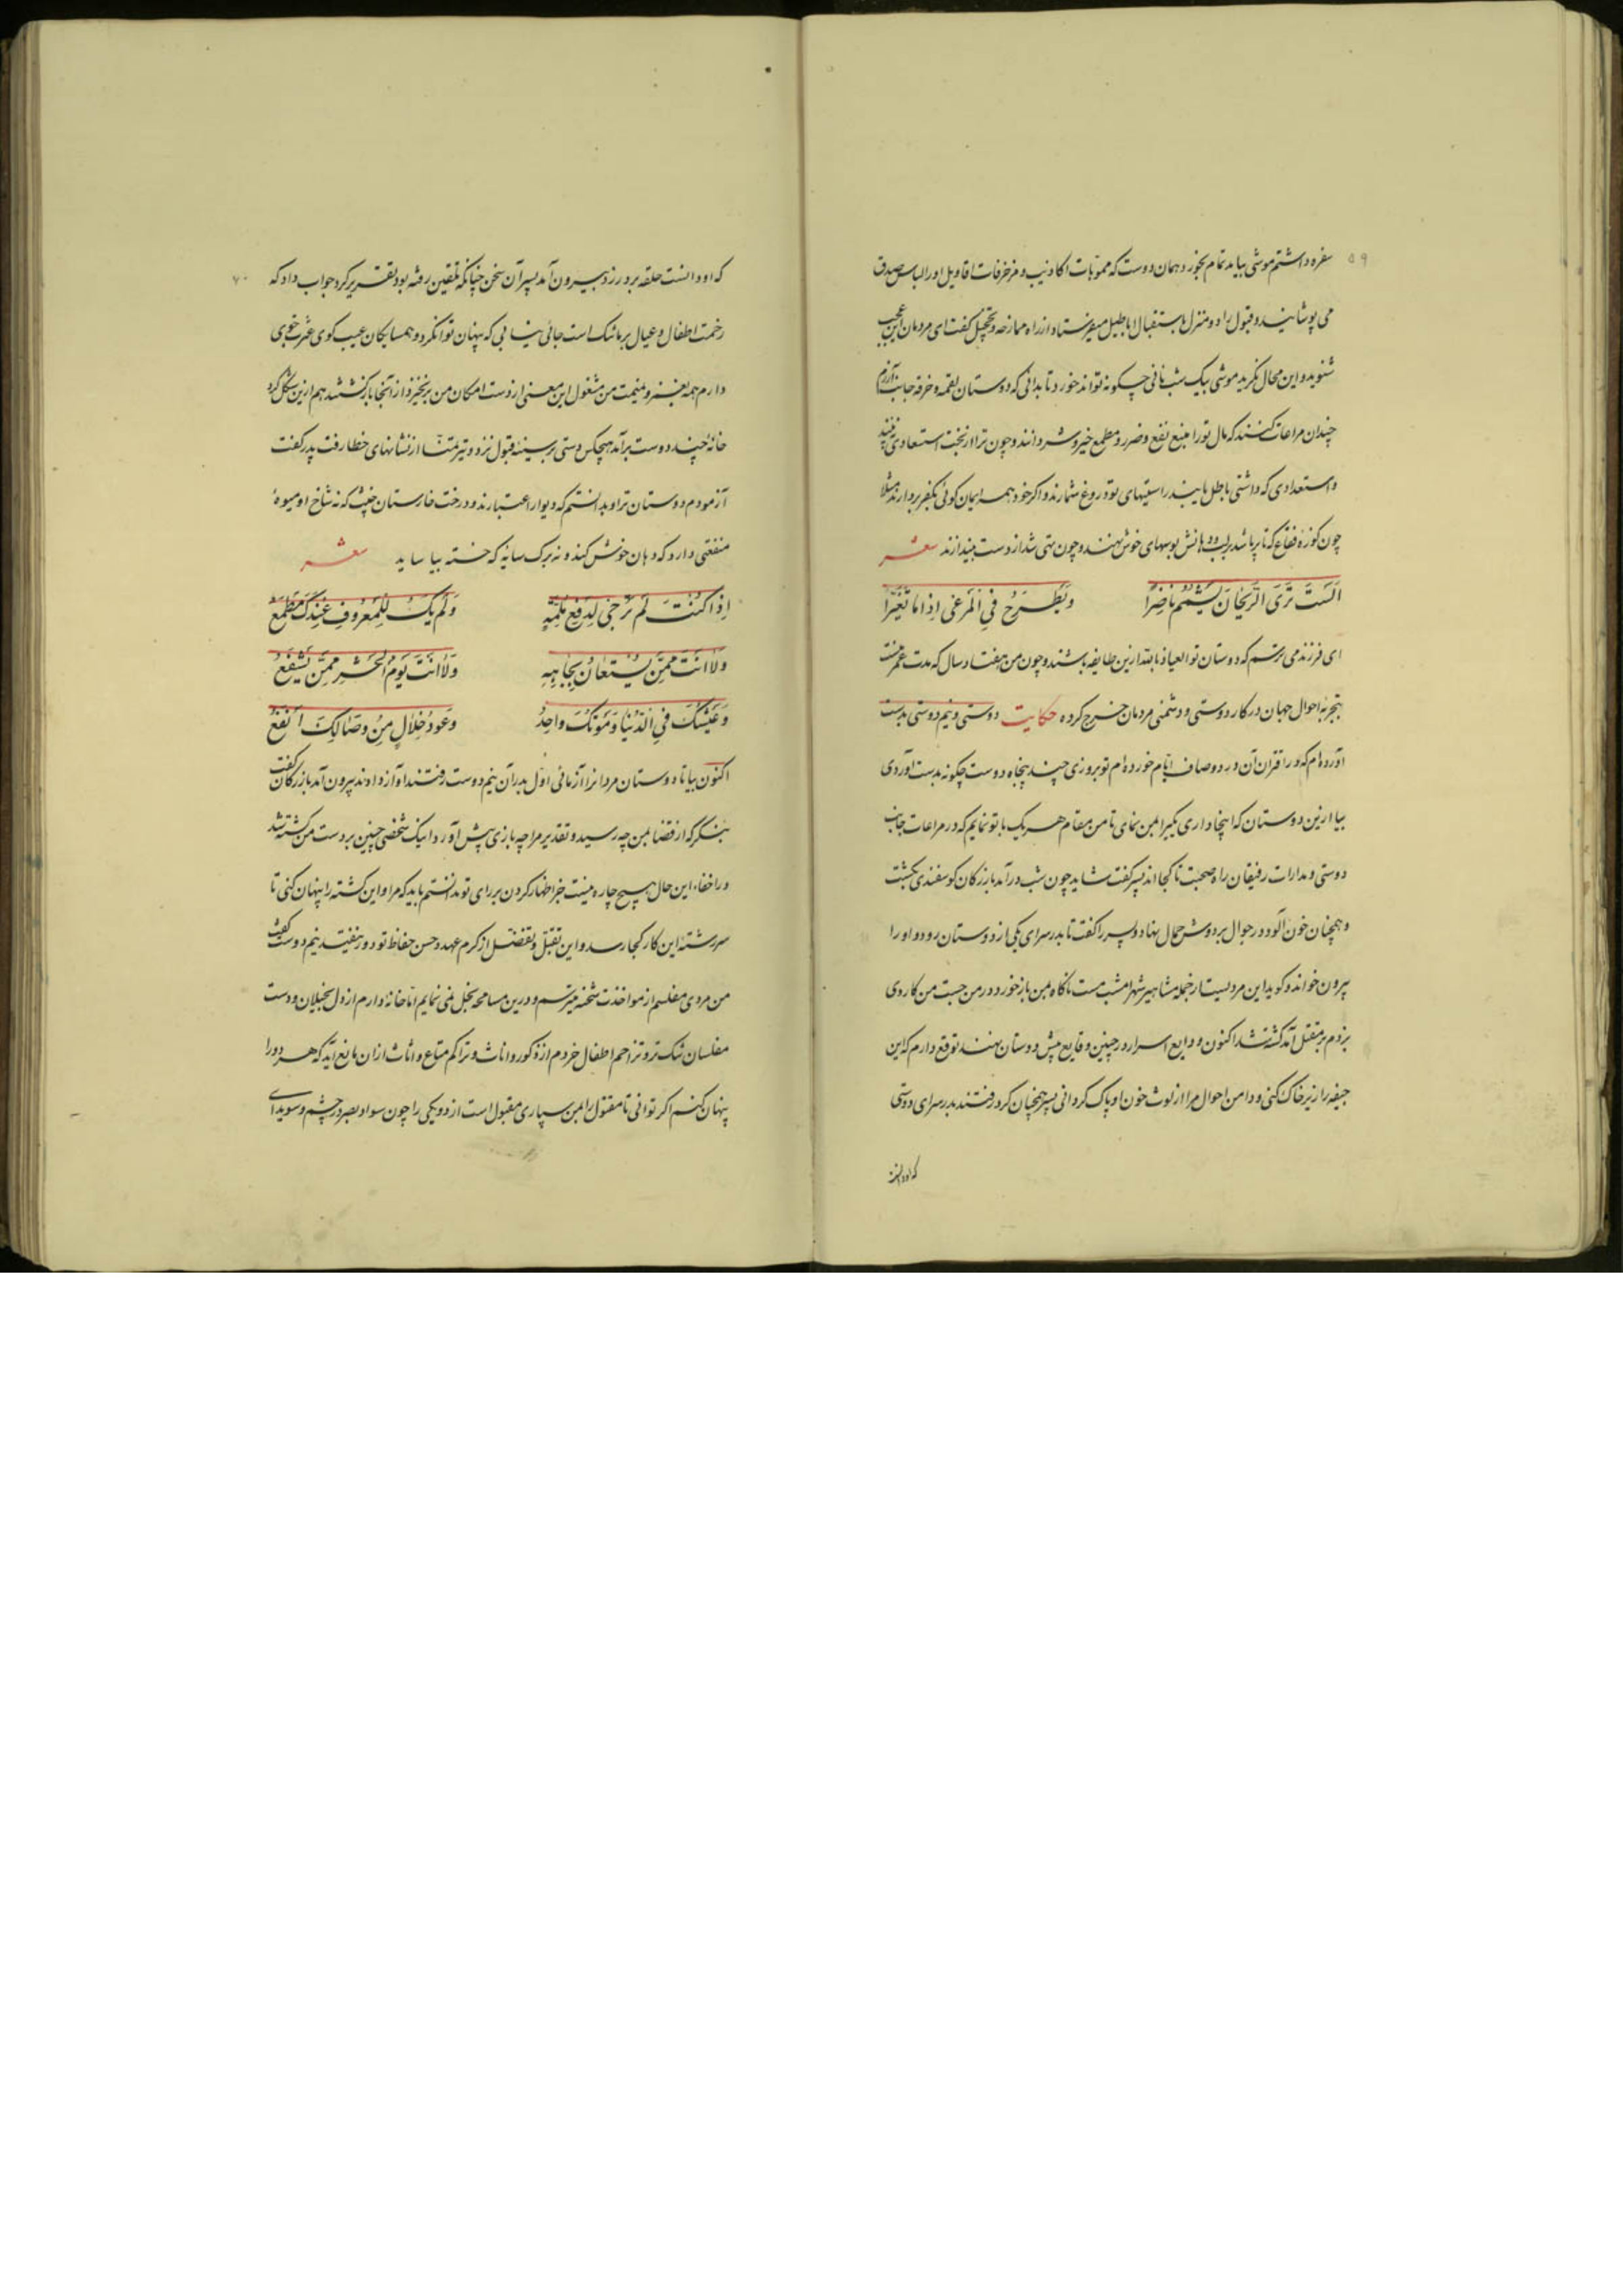 ۵۹
سفره داشتم موشی بیامد تمام بخورد همان دوست که مموّهات اکاذیب و مزخرفات اقاویل او را لباس صدق
می پوشانید و قبول را دو منزل باستقبال اباطیل میفرستاد از راه ممازحه و تخجیل گفت ای مردمان این عجب
شنوید و این محال نگرید موشی بیک شب نانی چگونه تواند خورد تا بدانی که دوستان لقمه و خرقه جانب آزرم
چندان مراعات کنند که مال تو را منبع نفع و ضرر و مطمع خیر و شر دانند و چون ترا از بخت استعدادی نبینند
و استعدادی که داشتی باطل یابند راستیهای تو دروغ شمارند و اگر خود همه ایمان گوئی بکفر بردارند مثلا
چون کوزه فقاع که تا پر باشد بر لب و دهانش بوسهای خوش نهند و چون تهی شد از دست بیندازند شعر
اَلَسْتَ تَرَی الرَّیْحَانَ یُشْتَمُّ نَاضِرًا وَیُطْرَحُ فِی الْمَرْعَی اِذَا مَا تَغَیَّرَا
ای فرزند می ترسم که دوستان تو العیاذ بالله ازین طایفه باشند و چون من هفتاد سال که مدت عمر منست
بتجربه احوال جهان در کار دوستی و دشمنی مردمان خرج کرده حکایت دوستی و نیم دوستی بدست
آورده ام که در اقتران آن درد و صاف ایّام خورده ام تو بروزی چند پنجاه دوست چگونه بدست آوردی
بیا ازین دوستان که اینجا داری یکی را بمن نمای تا من مقام هر یک با تو نمایم که در مراعات جانب
دوستی و مدارات رفیقان راه صحبت تا کجا اند پسر گفت شاید چون شب درآمد بازرگان گوسفندی بکشت
و همچنان خون آلود در جوال بر دوش حمال نهاد و پسر را گفت تا بدر سرای یکی از دوستان رود و او را
بیرون خواند و گوید این مردیست از جمله مشاهیر شهر امشب مست ناگاه بمن باز خورد در من جست من کاردی
بزدم بر مقتل آمد کشته شد اکنون ودایع اسرار در چنین وقایع پیش دوستان نهند توقع دارم که این
جیفه را زیر خاک کنی و دامن احوال مرا از لوث خون او پاک گردانی پسر همچنان کرد رفتند بدر سرای دوستی
که او دانست
۷۰
که او دانست حلقه بر در زد بیرون آمد پسر آن سخن چنانکه تلقین رفته بود تقریر کرد جواب داد که
زحمت اطفال و عیال بر ما تنگ است جائی نیابی که پنهان توان کرد و همسایگان عیب گوی عثرت جوی
دارم همه بغمز و نمیمت من مشغول این معنی از دست امکان من برنخیزد از آنجا بازگشتند هم ازین شکل گرد
خانهٔ چند دوست برآمد هیچکس دستی بر سینهٔ قبول نزد و تیر تمنّا از نشانهای خطا رفت پدر گفت
آزمودم دوستان ترا و بدانستم که دیوار اعتبارند و درخت خارستان خشب که نه شاخ او میوهٔ
منفعتی دارد که دهان خوش کند و نه برگ سایهٔ که خسته بیاساید شعر
اِذَا کُنْتَ لَمْ تُرْجَی لِدَفْعِ مُلِمَّةٍ وَلَمْ یَکُ لِلْمَعْرُوفِ عِنْدَکَ مَطْمَعُ
وَلَا اَنْتَ مِمَّنْ یُسْتَعَانُ بِجَاهِهِ وَلَا اَنْتَ یَوْمَ الْحَشْرِ مِمَّنْ یَشْفَعُ
وَعَیْشُکَ فِی الدُّنْیَا وَمَوْتُکَ وَاحِدُ وَعُودُ خِلَالٍ مِنْ وِصَالِکَ اَنْفَعُ
اکنون بیا تا دوستان مردانرا آزمائی اول بدر آن نیم دوست رفتند آواز دادند بیرون آمد بازرگان گفت
بنگر که از قضا بمن چه رسید و تقدیر مرا چه بازی پیش آورد اینک شخصی چنین بر دست من کشته شد
و از اخفاء این حال هیچ چاره نیست جز اظهار کردن بر رای تو ندانستم باید که مرا و این کشته را پنهان کنی تا
سررشته این کار کجا رسد و این تقبّل و تفضّل از کرم عهد و حسن حفاظ تو دور نیفتد نیم دوست گفت
من مردی مفلسم از مؤاخذت شحنه میترسم و درین مسامحه بخل نمی نمایم امّا خانهٔ دارم از دل بخیلان و دست
مفلسان تنگ تر و تزاحم اطفال خردم از ذکور و اناث و تراکم متاع و اثاث از آن مانع آید که هر دو را
پنهان کنم اگر توانی تا مقتول را بمن سپاری مقبول است از دو یکی را چون سواد بصر در چشم و سویدای